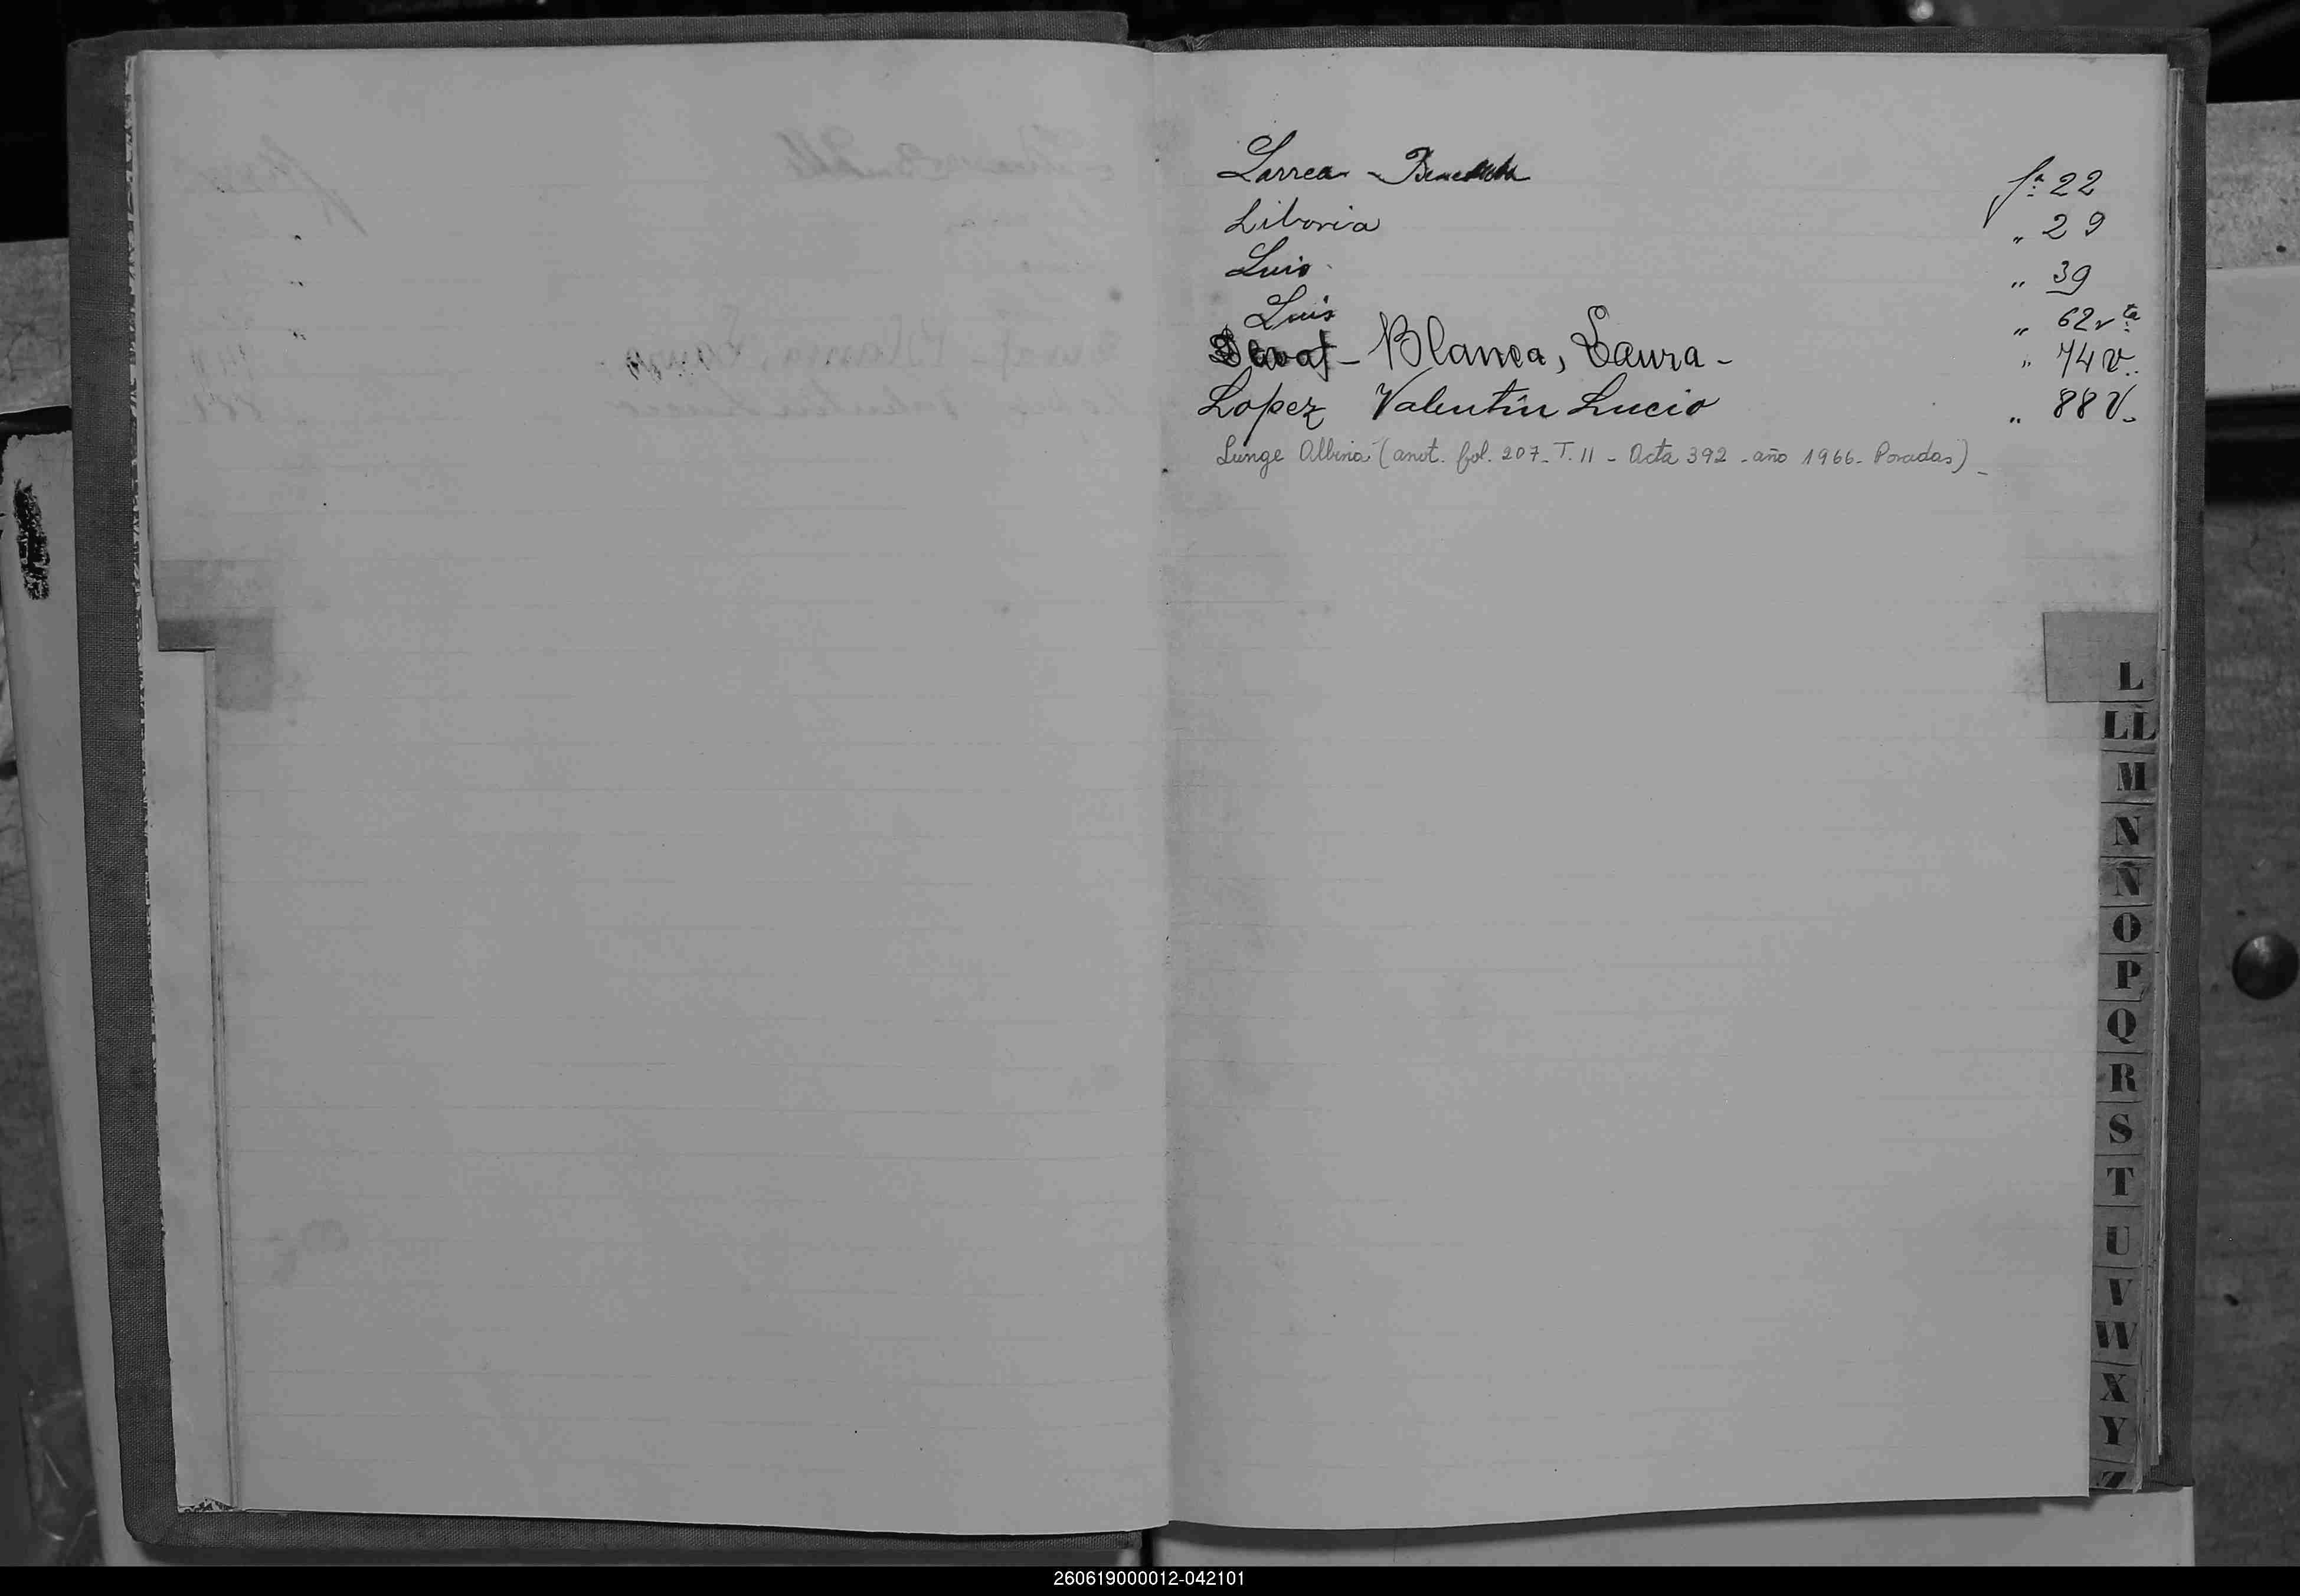 Larrea - f.ª 22
Liboria „ 29
Luis „ 39
Luis „ 62 v.ta
- Blanca, Laura - „ 74 v.
Lopez Valentín Lucio „ 88 V.
Lunge Albina (anot. fol. 207 - T. II - Acta 392 - año 1966 - Posadas) -
L
LL
M
N
Ñ
O
P
Q
R
S
T
U
V
W
X
Y
Z
260619000012-042101